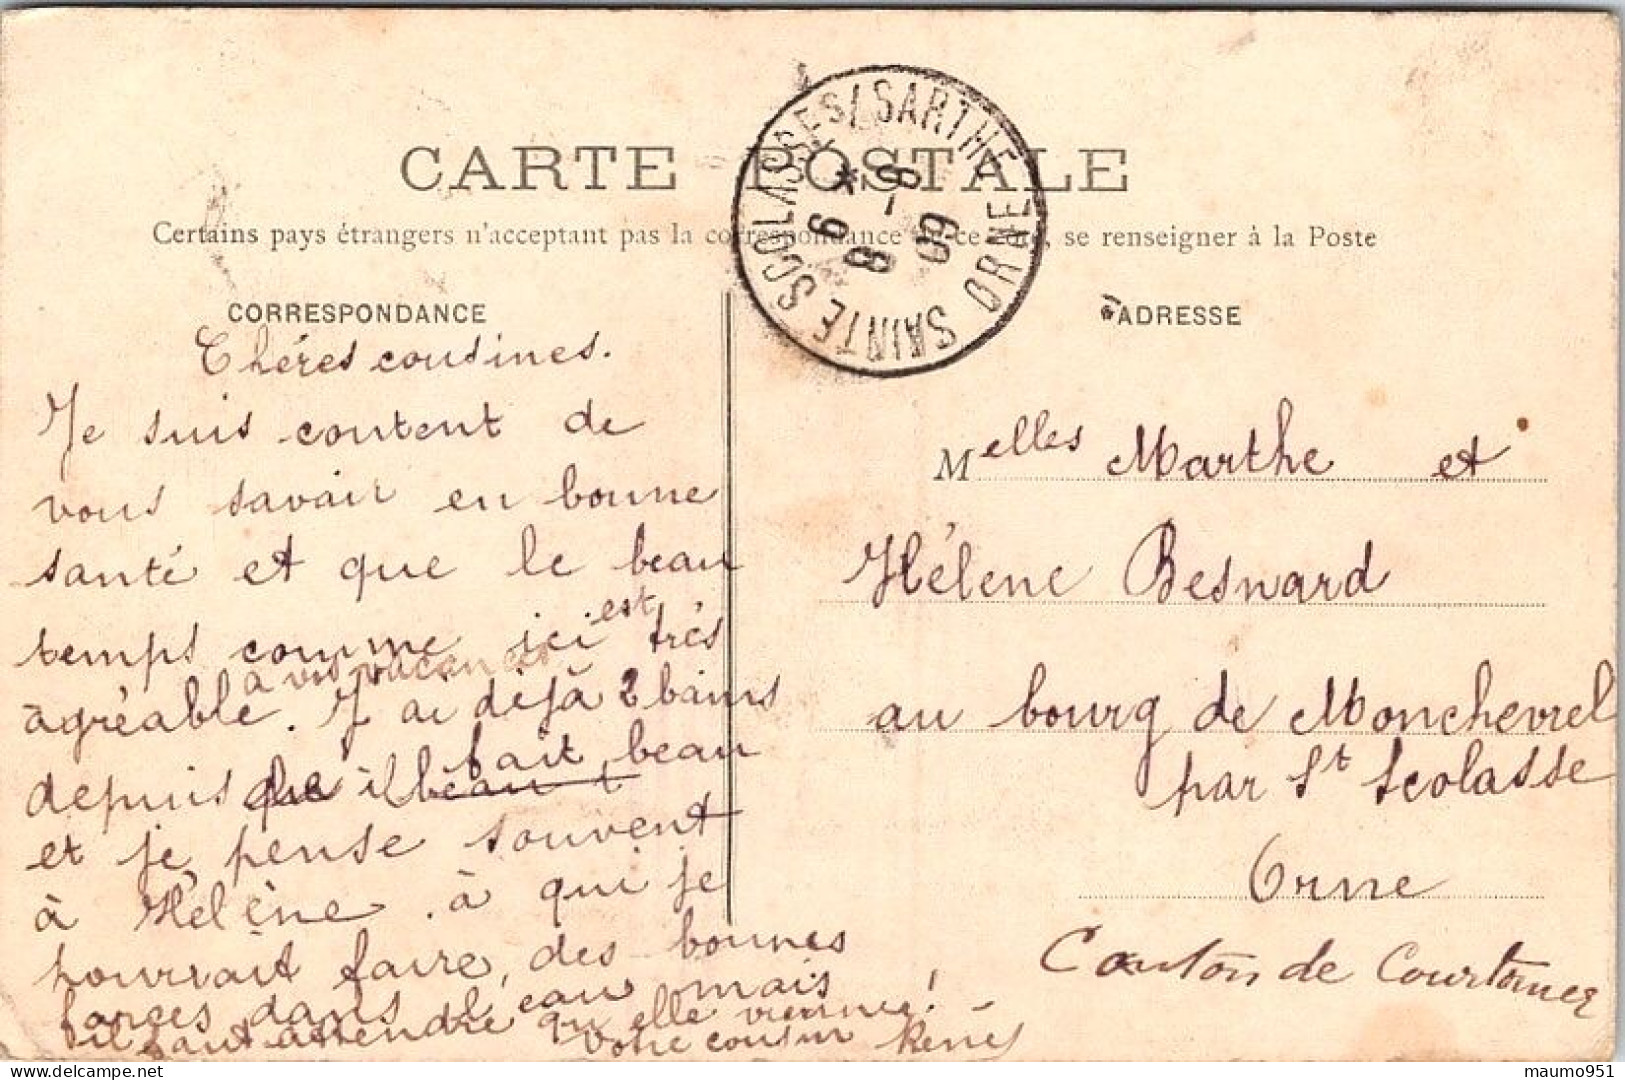 CARTE POSTALE
Certains pays étrangers n'acceptent pas la correspondance de ce côté, se renseigner à la Poste
SAINTE SCOLASSES/SARTHE ORNE
* 8-8
6 8 09
CORRESPONDANCE
ADRESSE
Chéres cousines.
Je suis content de
vous savair en bonne
santé et que le beau
temps comme ici est trés
à vos vacances
agréable. J ai dejà 2 bains
depuis que il beau t fait beau
et je pense souvent
à Hélène . à qui je
pourrait faire des bonnes
farces dans l'eau mais
il faut attendre qu'elle vienne!
Votre cousin René
Melles Marthe et
Hélene Besnard
au bourg de Monchevrel
par St Scolasse
Orne
Canton de Courtomer
delcampe.net
maumo951